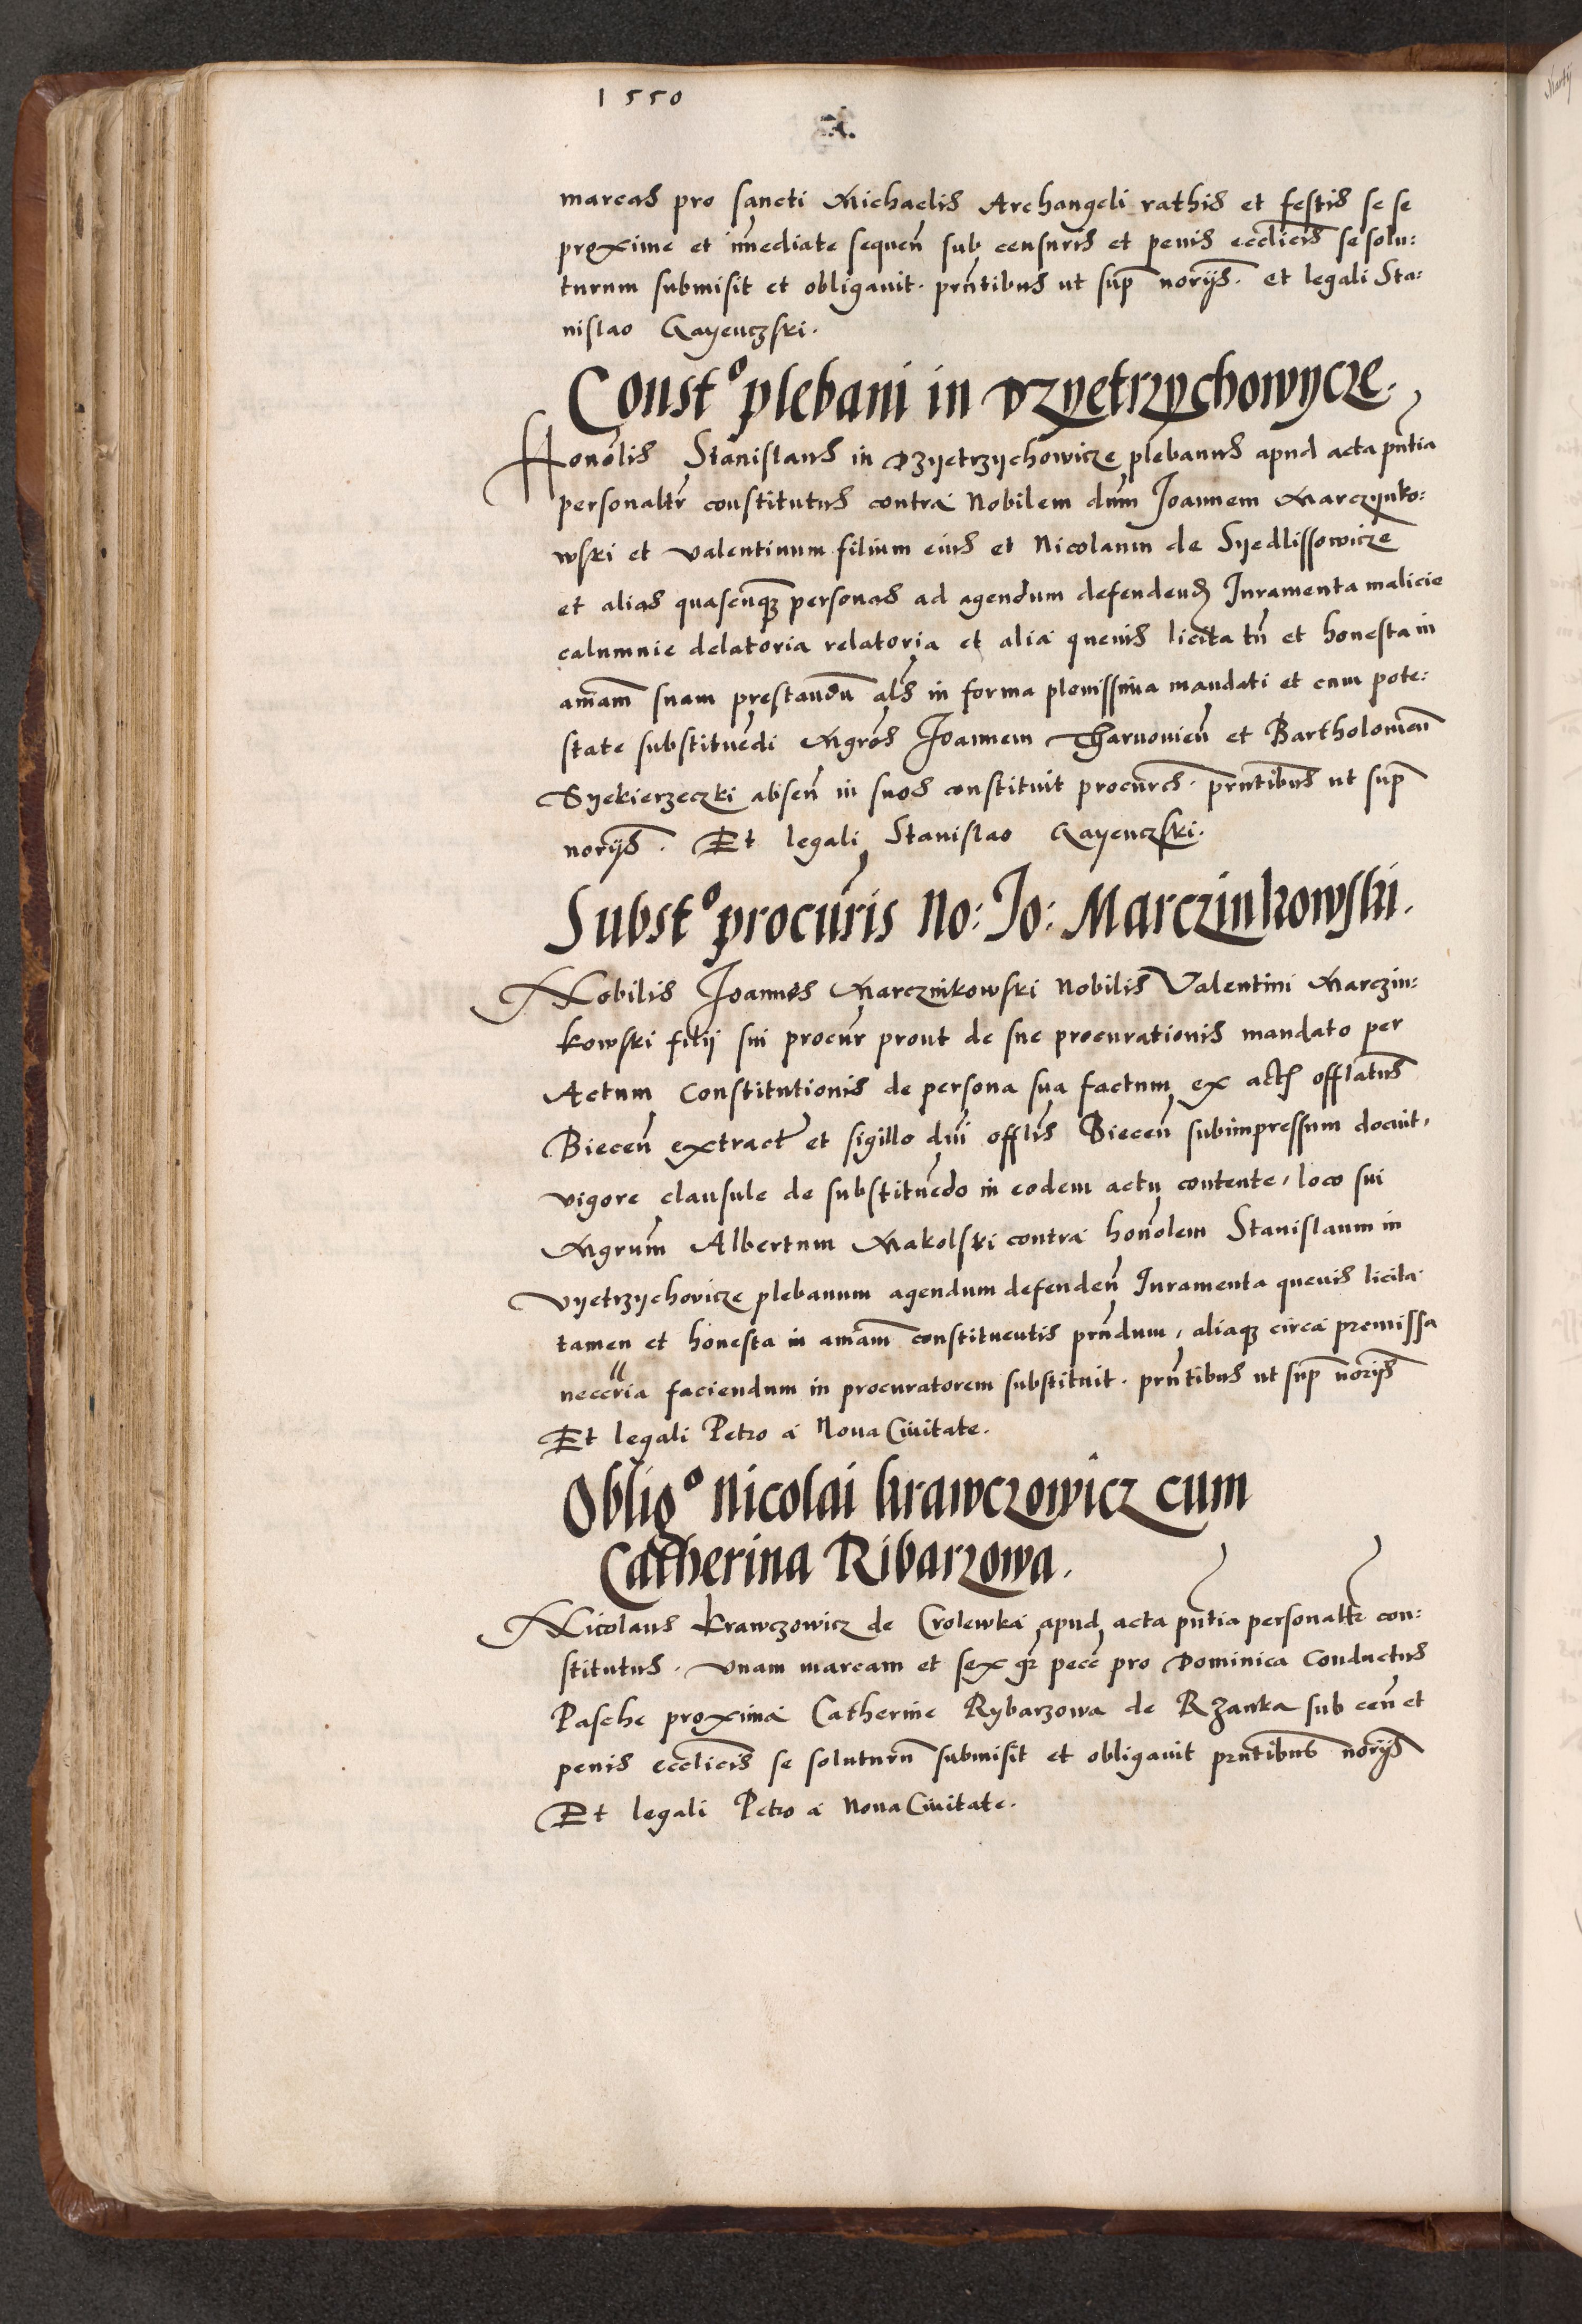 1550
marcas pro sancti Michaelis Archangeli rathis et festis se se
proxime et im̄ediate sequen̄ sub censuris et penis eccl̄icis se solu:
turum submisit et obligauit. prn̄tibus ut sup̄ norijs̄. et legali Sta:
nislao Gayenczski.
Const⁰ plebani in Vzyetrzychowycze.
Honōlis Stanislaus in Vzyetrzychowicze plebanus apud acta pn̄tia
personalr̄ constitutus contra Nobilem dūm Joannem Marczynko:
wski et Valentinum filium eius et Nicolaum de Syedlissowicze
et alias quascunq̄ personas ad agendum defendend̄ Iuramenta malicie
calumnie delatoria relatoria et alia queuis licita tn̄ et honesta in
am̄am suam prestandū als̄ in forma plenissima mandati et cum pote:
state substituēdi Mgrōs Joannem Tharnouien̄ et Bartholomeū
Syekierzeczki absen̄ in suos constituit procurēs. prn̄tibus ut sup̄
norijs̄. Et legali Stanislao Gayenczski.
Subst⁰ procūris No: Jo: Marczinkowski.
Nobilis Joannes Marczinkowski Nobilis Valentini Marczin:
kowski filij sui procur̄ prout de sue procurationis mandato per
Actum Constitutionis de persona sua factum ex act̄ offl̄atus
Biecen̄ extract̄ et sigillo dn̄i offl̄is Biecen̄ subimpressum docuit,
vigore clausule de substituēdo in eodem actu contente, loco sui
Mgrūm Albertum Makolski contra honōlem Stanislaum in
Vyetrzychovicze plebanum agendum defenden̄ Iuramenta queuis licita
tamen et honesta in am̄am constituentis prn̄dum, aliaq̄ circa premissa
neccr̄ia faciendum in procuratorem substituit. prn̄tibus ut sup̄ norijs̄
Et legali Petro a Noua Ciuitate.
Oblig⁰ Nicolai krawczowicz cum
Catherina Ribarzowa.
Nicolaus Krawczowicz de Crolewka apud acta pn̄tia personalr̄ con:
stitutus. Vnam marcam et sex gr̄ pecc̄ pro Dominica Conductus
Pasche proxima Catherine Rybarzowa de Rzanka sub cen̄ et
penis eccl̄icis se soluturū submisit et obligauit prn̄tibus norijs̄
Et legali Petro a Noua Ciuitate.